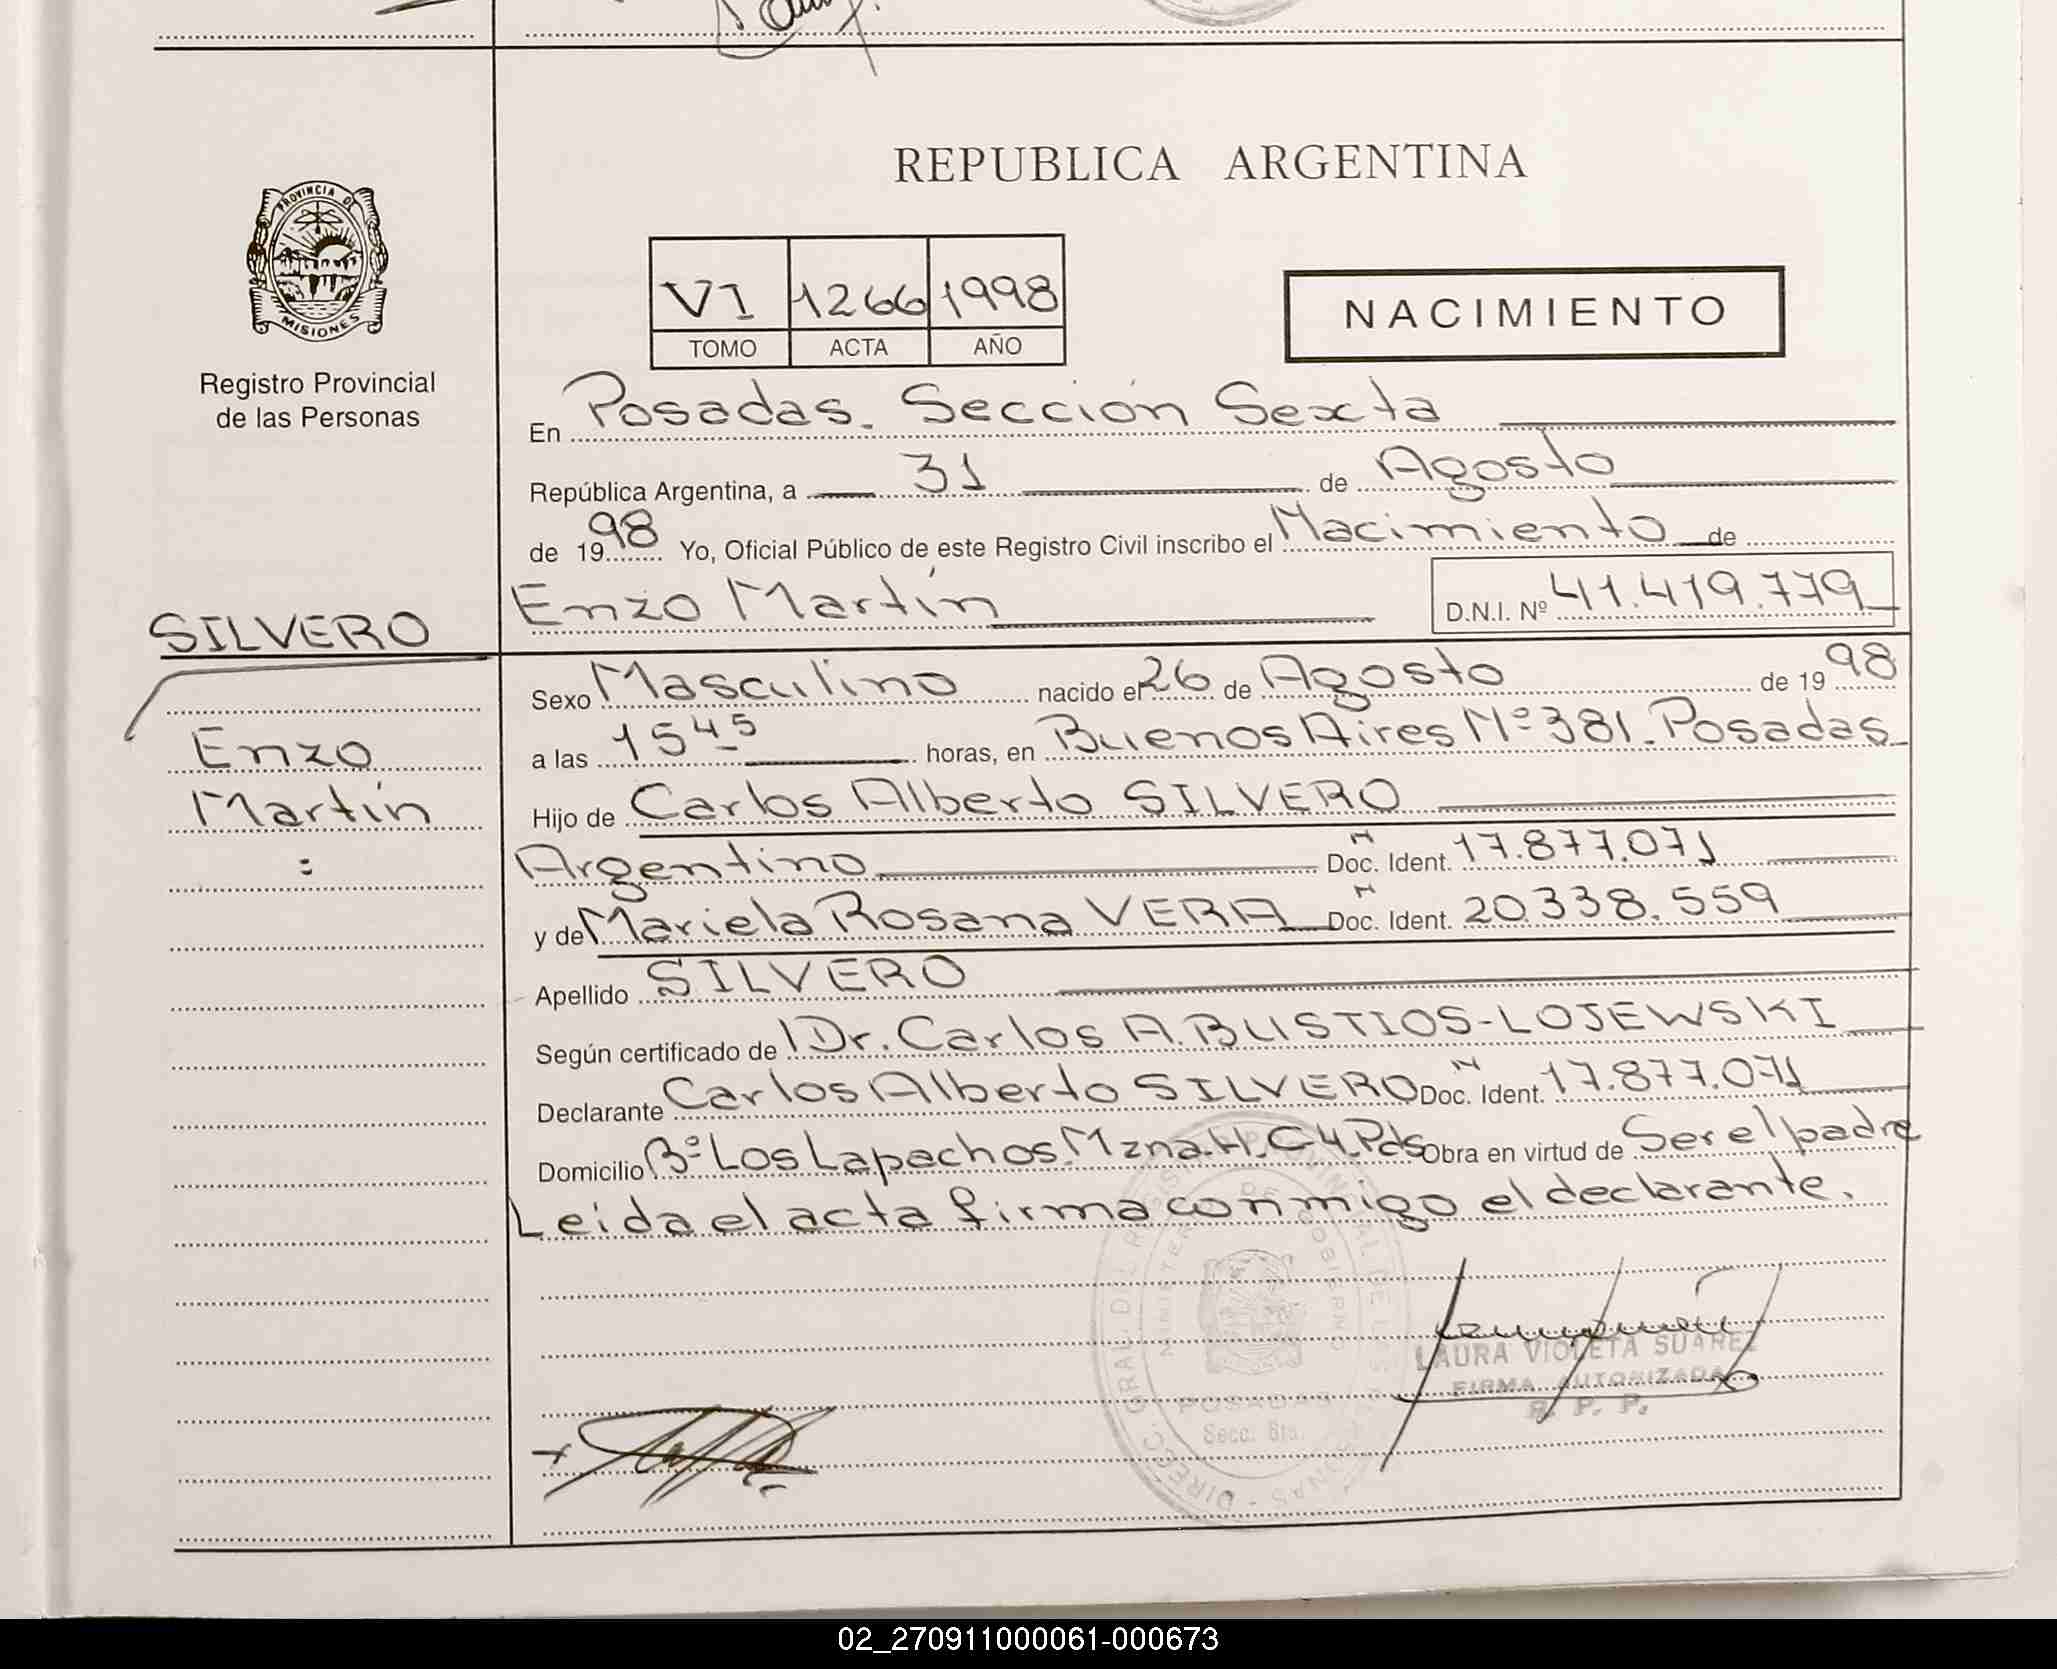 PROVINCIA DE
MISIONES
Registro Provincial
de las Personas
REPUBLICA ARGENTINA
VI 1266 1998
TOMO ACTA AÑO
NACIMIENTO
En Posadas. Sección Sexta
República Argentina, a 31 de Agosto
de 1998 Yo, Oficial Público de este Registro Civil inscribo el Nacimiento de
Enzo Martín D.N.I. Nº 41.419.779
SILVERO
Enzo
Martín
:
Sexo Masculino nacido el 26 de Agosto de 1998
a las 15 45 horas, en Buenos Aires Nº 381. Posadas
Hijo de Carlos Alberto SILVERO
Argentino Doc. Ident. N 17.877.071
y de Mariela Rosana VERA Doc. Ident. N 20.338.559
Apellido SILVERO
Según certificado de Dr. Carlos A. BUSTIOS-LOJEWSKI
Declarante Carlos Alberto SILVERO Doc. Ident. N 17.877.071
Domicilio Bº Los Lapachos. Mzna. H. C 4. Pds Obra en virtud de Ser el padre
Leida el acta firma conmigo el declarante.
DIRECC. GRAL. DEL REGISTRO PROVINCIAL DE LAS PERSONAS
MINISTERIO DE GOBIERNO
POSADAS
Secc. 6ta.
LAURA VIOLETA SUAREZ
FIRMA AUTORIZADA
R. P. P.
02_270911000061-000673